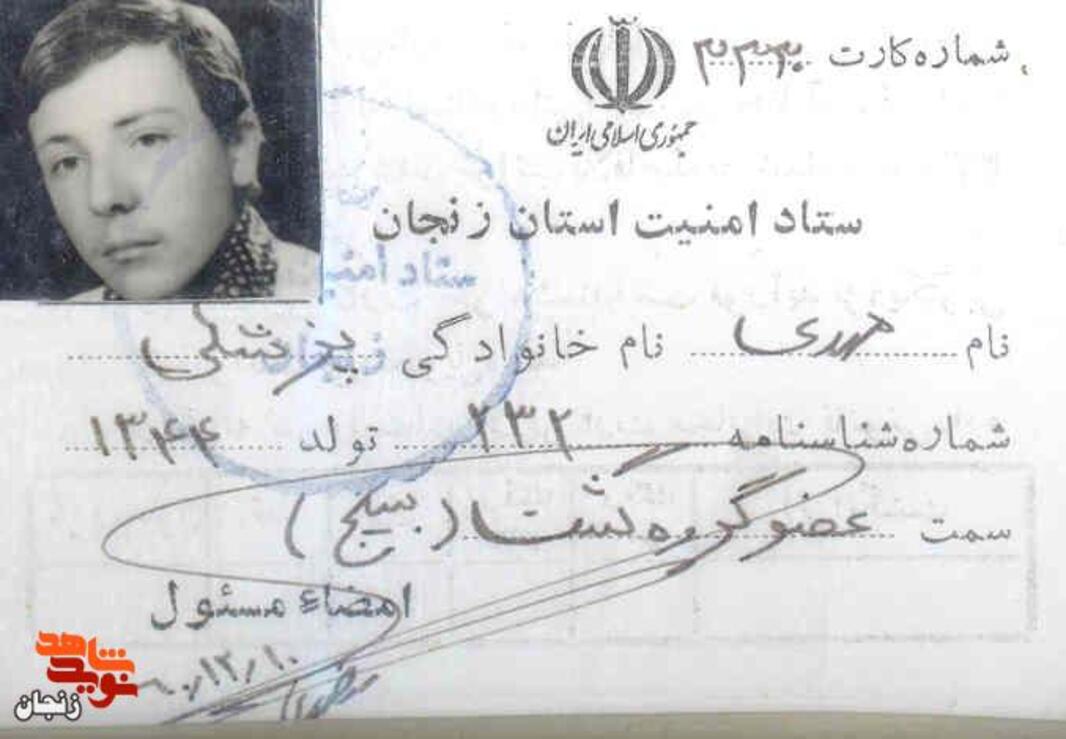 شماره کارت
جمهوری اسلامی ایران
ستاد امنیت استان زنجان
ستاد امنیت
نام مهدی نام خانوادگی پزشکی
شماره شناسنامه ۲۳۲ تولد ۱۳۴۴
سمت عضو گروه گشت (بسیج)
امضاء مسئول
نوید شاهد
زنجان